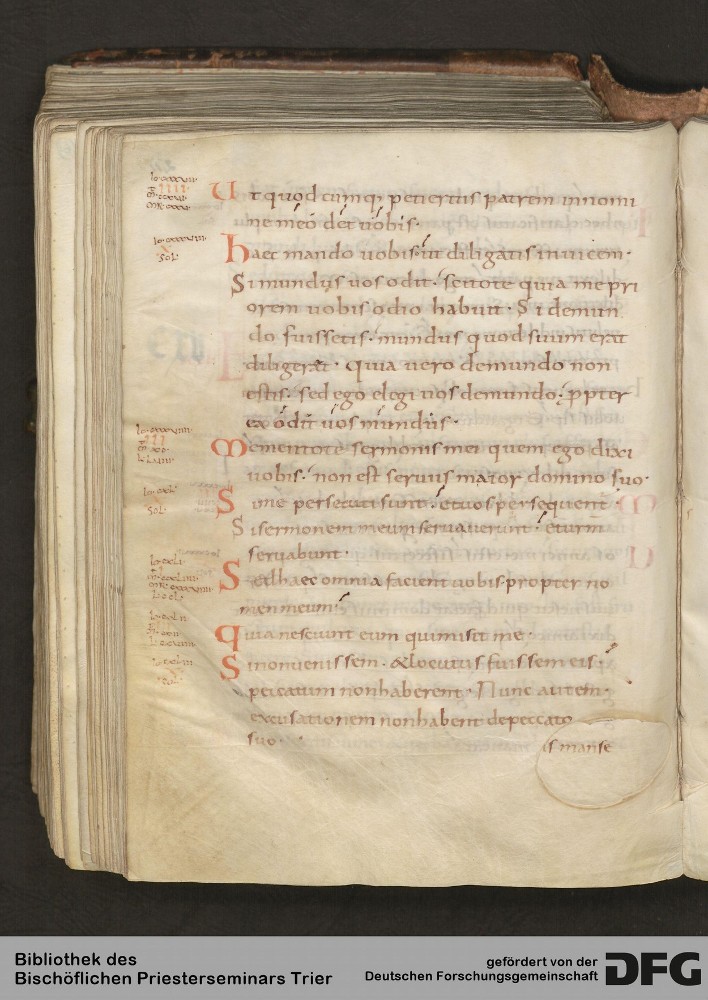 Ut quodcumq; petieritis patrem in nomi
ne meo det uobis.
haec mando uobis ut diligatis inuicem.
Si mundus uos odit. scitote quia me pri
orem uobis odio habuit. Si de mun
do fuissetis. mundus quod suum erat
diligeret. Quia uero de mundo non
estis. sed ego elegi uos de mundo. ppter
ex odit uos mundus.
Mementote sermonis mei quem ego dixi
uobis. non est seruus maior domino suo.
Si me persecuti sunt. et uos persequent
Si sermonem meum seruauerunt. et urm
seruabunt.
Sed haec omnia facient uobis propter no
men meum.
Quia nesciunt eum qui misit me.
Si non uenissem. & locutus fuissem eis.
peccatum non haberent. Nunc autem.
excusationem non habent de peccato
suo.
is manse
Bibliothek des
Bischöflichen Priesterseminars Trier
gefördert von der
Deutschen Forschungsgemeinschaft
DFG